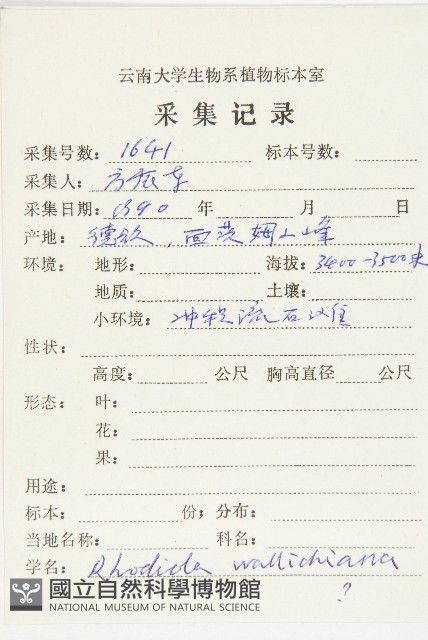 云南大学生物系植物标本室
采集记录
采集号数：1641 标本号数：
采集人：方振东
采集日期：1990 年 月 日
产地：德钦，面茨姆山峰
环境：地形： 海拔：3400-3500米
地质： 土壤：
小环境：冲积流石
性状：
高度： 公尺 胸高直径 公尺
形态：叶：
花：
果：
用途：
标本： 份；分布：
当地名称： 科名：
学名：Rhodiola wallichiana
?
國立自然科學博物館
NATIONAL MUSEUM OF NATURAL SCIENCE